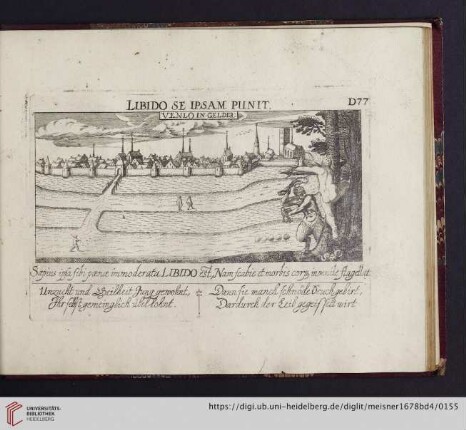 LIBIDO SE IPSAM PUNIT. D77
VENLO IN GELDER.
Sæpius ipsa sibi pœnæ immoderata LIBIDO est, Nam scabie et morbis
Unzucht und Geilheit Jung gewohnt,
Ihr selbst gemeinglich übel lohnt.
Denn sie manch gebirt,
Dardurch der Leib wirt
UNIVERSITÄTS-
BIBLIOTHEK
HEIDELBERG
https://digi.ub.uni-heidelberg.de/diglit/meisner1678bd4/0155